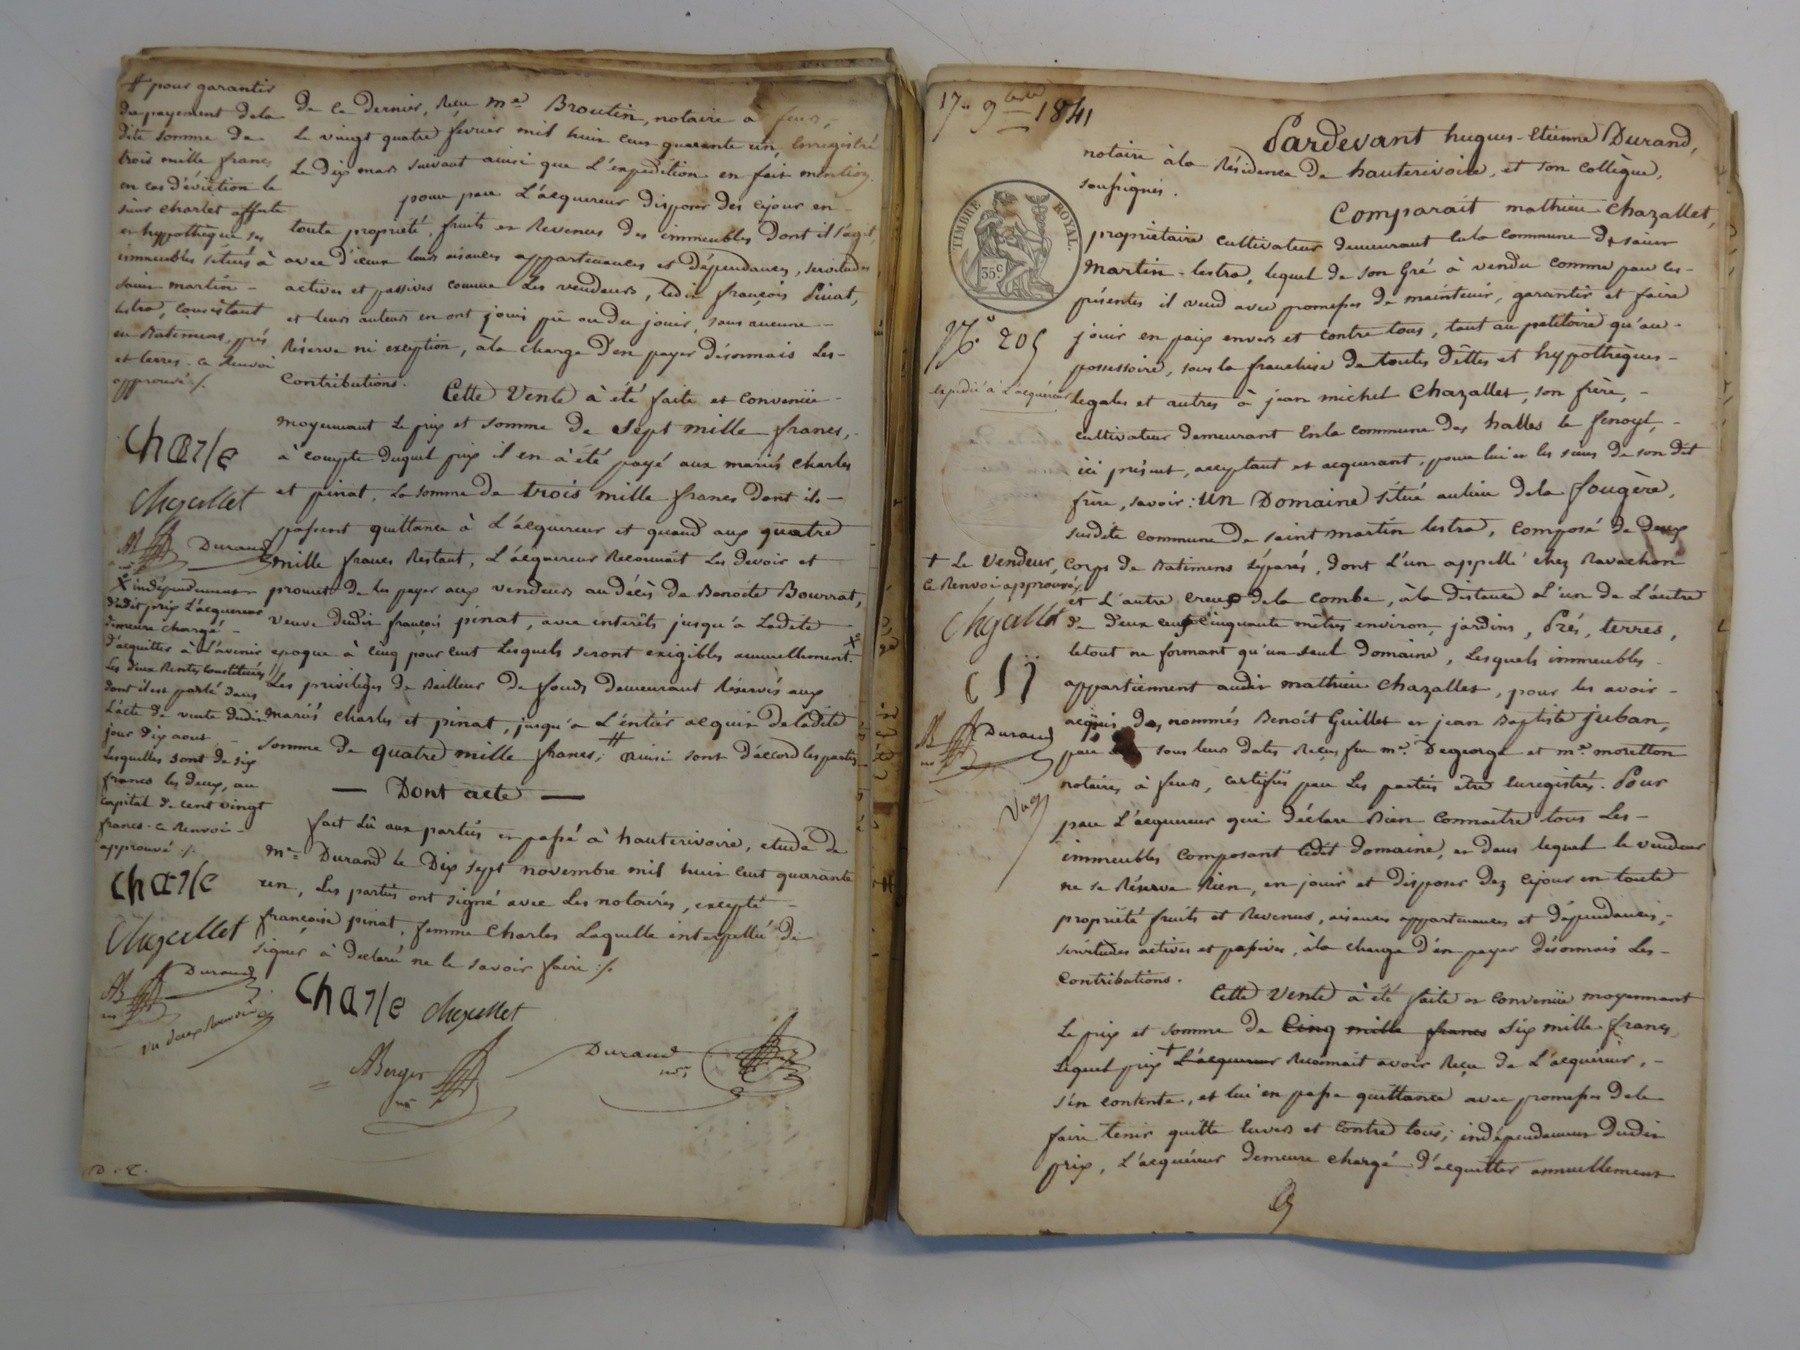 # pour garantir
du payement de la
dite somme de
trois mille francs
en cas d'éviction le
sieur charlet affecte
en hypothèque ses
immeubles situés à
saint martin -
lestra, consistant
en Batimens, prés
et terres. ce Renvoi
approuvé /.
charle
Chazallet
Durand
X indépendamment
dudit prix L'acquereur
demeure chargé -
d'acquitter à L'avenir
les deux Rentes constituées
dont il est parlé dans
L'acte de vente dudit
jour dix aout -
lesquelles sont de six
francs les deux, au
capital de cent vingt
francs. ce Renvoi -
approuvé /.
charle
Chazallet
Durand
vu deux Renvois
de ce dernier, Reçu me Broutin, notaire à feurs,
Le vingt quatre fevrier mil huit cent quarante un, Enregistré
Le dix mars suivant ainsi que L'expédition en fait mention.
pour par L'acquereur disposer dès cejour en -
toute propriété, fruits et Revenus des immeubles dont il s'agit,
avec d'iceux leurs aisances appartenances et dépendances, servitudes
actives et passives comme Les vendeurs, ledit françois Pinat,
et leurs auteurs en ont joui pû ou du jouir, sans aucune -
Réserve ni exception, àla charge d'en payer désormais Les -
contributions.
Cette Vente à été faite et convenüe -
moyennant Le prix et somme de sept mille francs, -
à compte duquel prix il en à été payé aux mariés charles
et pinat, La somme de trois mille francs dont ils -
passent quittance à L'acquereur et quand aux quatre
mille francs Restant, L'acquereur Reconnait Les devoir et
promet de les payer aux vendeurs au décès de Benoite Bourrat,
veuve dudit françois pinat, avec intérêts jusqu'à Ladite
epoque à cinq pour cent Lesquels seront exigibles annuellement. X
Les privilèges de Bailleur de fonds demeurant Réservés aux
mariés charles et pinat, jusqu'à L'entier acquit de ladite
somme de quatre mille francs; # ainsi sont d'accord les parties
— Dont acte —
fait Lû aux parties et passé à hauterivoire, etude de
me Durand le Dix sept novembre mil huit cent quarante
un, Les parties ont signé avec Les notaires, excepté -
françoise pinat, femme Charles Laquelle interpellée de
signer à déclaré ne le savoir faire /.
charle Chazallet
Berger
Durand
17. 9bre 1841
Pardevant hugues-etienne Durand,
notaire àla Résidence de hauterivoire, et son collègue,
soussignés.
TIMBRE ROYAL
35 c
Comparait mathieu Chazallet,
propriétaire cultivateur demeurant enla commune de saint
martin - lestra, lequel de son Gré à vendu comme par ces -
présentes il vend avec promesses de maintenir, garantir et faire
jouir en paix envers et contre tous, tant au petitoire qu'au -
possessoire, sous la franchise de toutes dettes et hypothèques -
legales et autres à jean michel Chazallet, son frère, -
cultivateur demeurant Enla commune des halles le fenoyl, -
ici présent, acceptant et acquerant, pour lui et les siens de son dit
frère, savoir: un Domaine situé aulieu dela fougère,
susdite commune de saint martin lestra, composé de deux
corps de Batimens séparés, dont L'un appellé chez Ravachon
et L'autre creux dela combe, àla distance L'un de L'autre
de deux cent cinquante mètres environ, jardins, Prés, terres,
letout ne formant qu'un seul domaine, Lesquels immeubles -
appartiennent audit mathieu Chazallet, pour les avoir -
acquis des nommés Benoît Guillet et jean Baptiste juban,
par sous leurs dates Reçus feu me Degeorge et me moretton
notaires à feurs, certifiés par Les parties etre Enregistrés. Pour
par L'acquereur qui déclare Bien connaitre tous Les -
immeubles composant ledit domaine, et dans lequel le vendeur
ne se Réserve Rien, en jouir et disposer dez cejour en toute
propriété fruits et Revenus, aisances appartenances et dépendances, -
servitudes actives et passives, àla charge d'en payer désormais Les -
contributions.
Cette Vente à été faite et convenüe moyennant
Le prix et somme de cinq mille francs six mille francs,
Lequel prix + L'acquereur Reconnait avoir Reçu de L'acquéreur, -
s'en contente, et lui en passe quittance avec promesses dele
faire tenir quitte Envers et contre tous; indépendamment dudit
prix, L'acquéreur demeure chargé d'acquitter annuellement
No. 205
expédié à L'acquéreur
+ Le Vendeur,
ce Renvoi approuvé
Chazallet
Durand